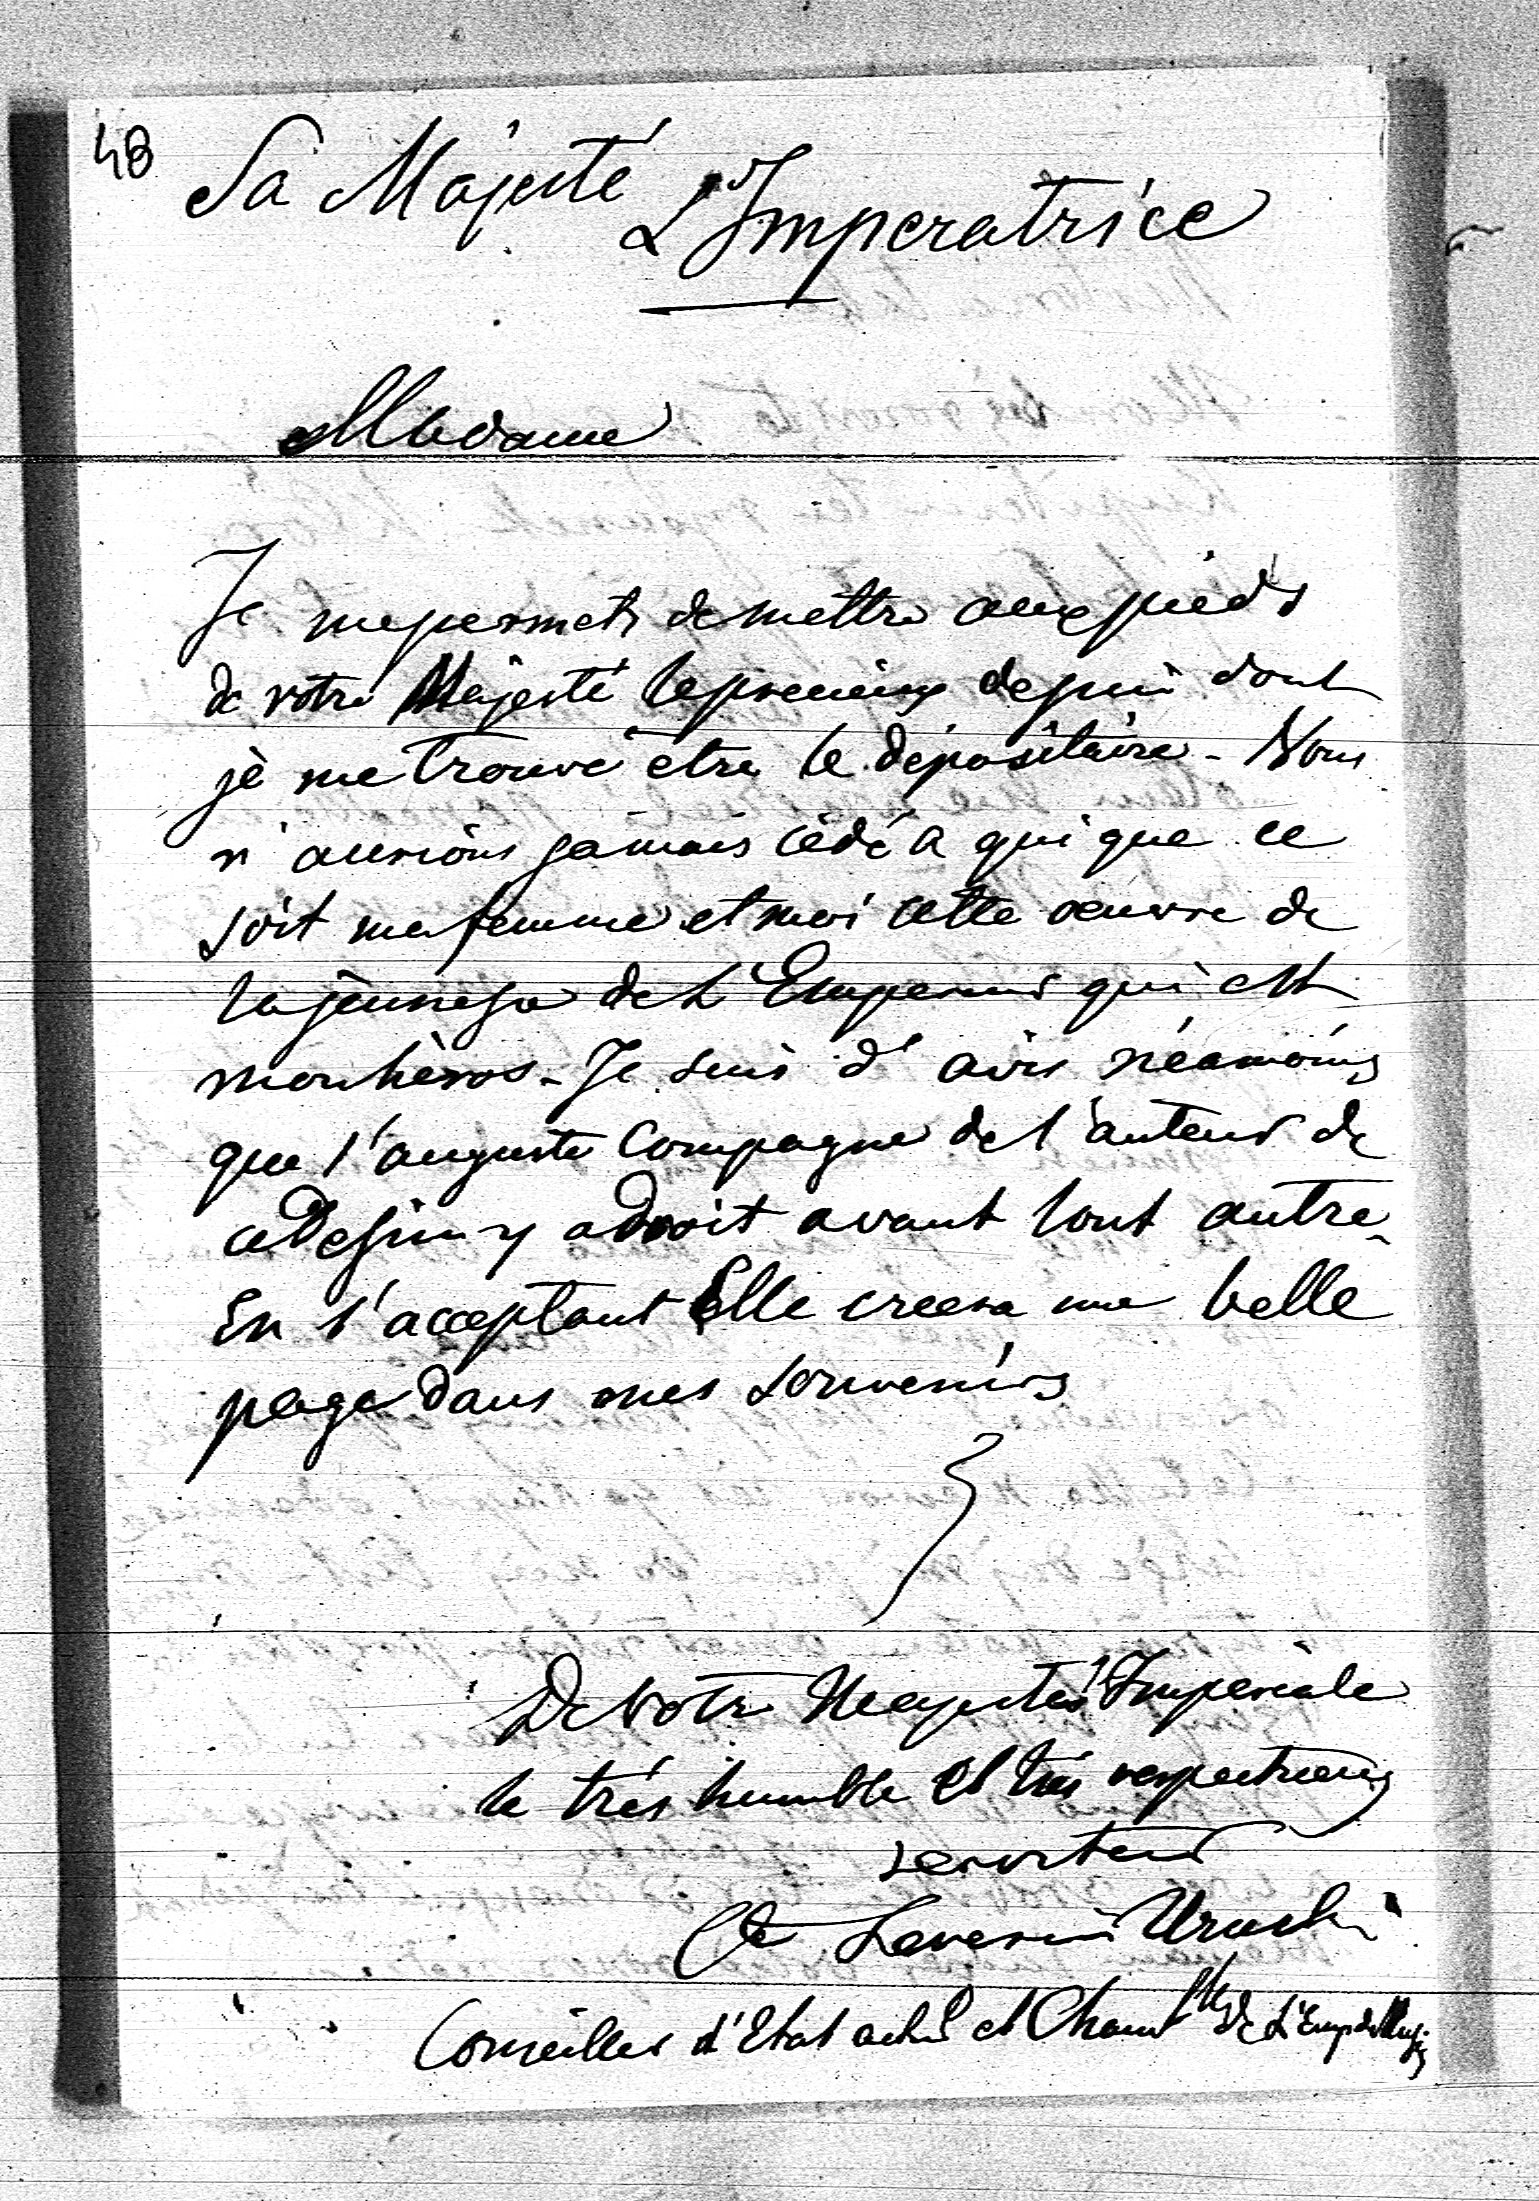 48
Sa Majesté
L'Imperatrice
Madame
Je me permets de mettre aux pieds
de votre Majesté le precieux dessin dont
je me trouve être le dépositaire - Nous
n'aurions jamais cédé a qui que ce
soit ma femme et moi cette oeuvre de
la jeunesse de L'Empereur qui est
mon héros - Je suis d'avis néamoins
que l'auguste Compagne de l'auteur de
ce Dessin y a droit avant tout autre -
En l'acceptant Elle creera une belle
page dans mes souvenirs
De Votre Majesté Imperiale
le très humble et très respectueux
serviteur
Cte Severin Uruski
Conseiller d'Etat actuel et Chamb de L'Emp de